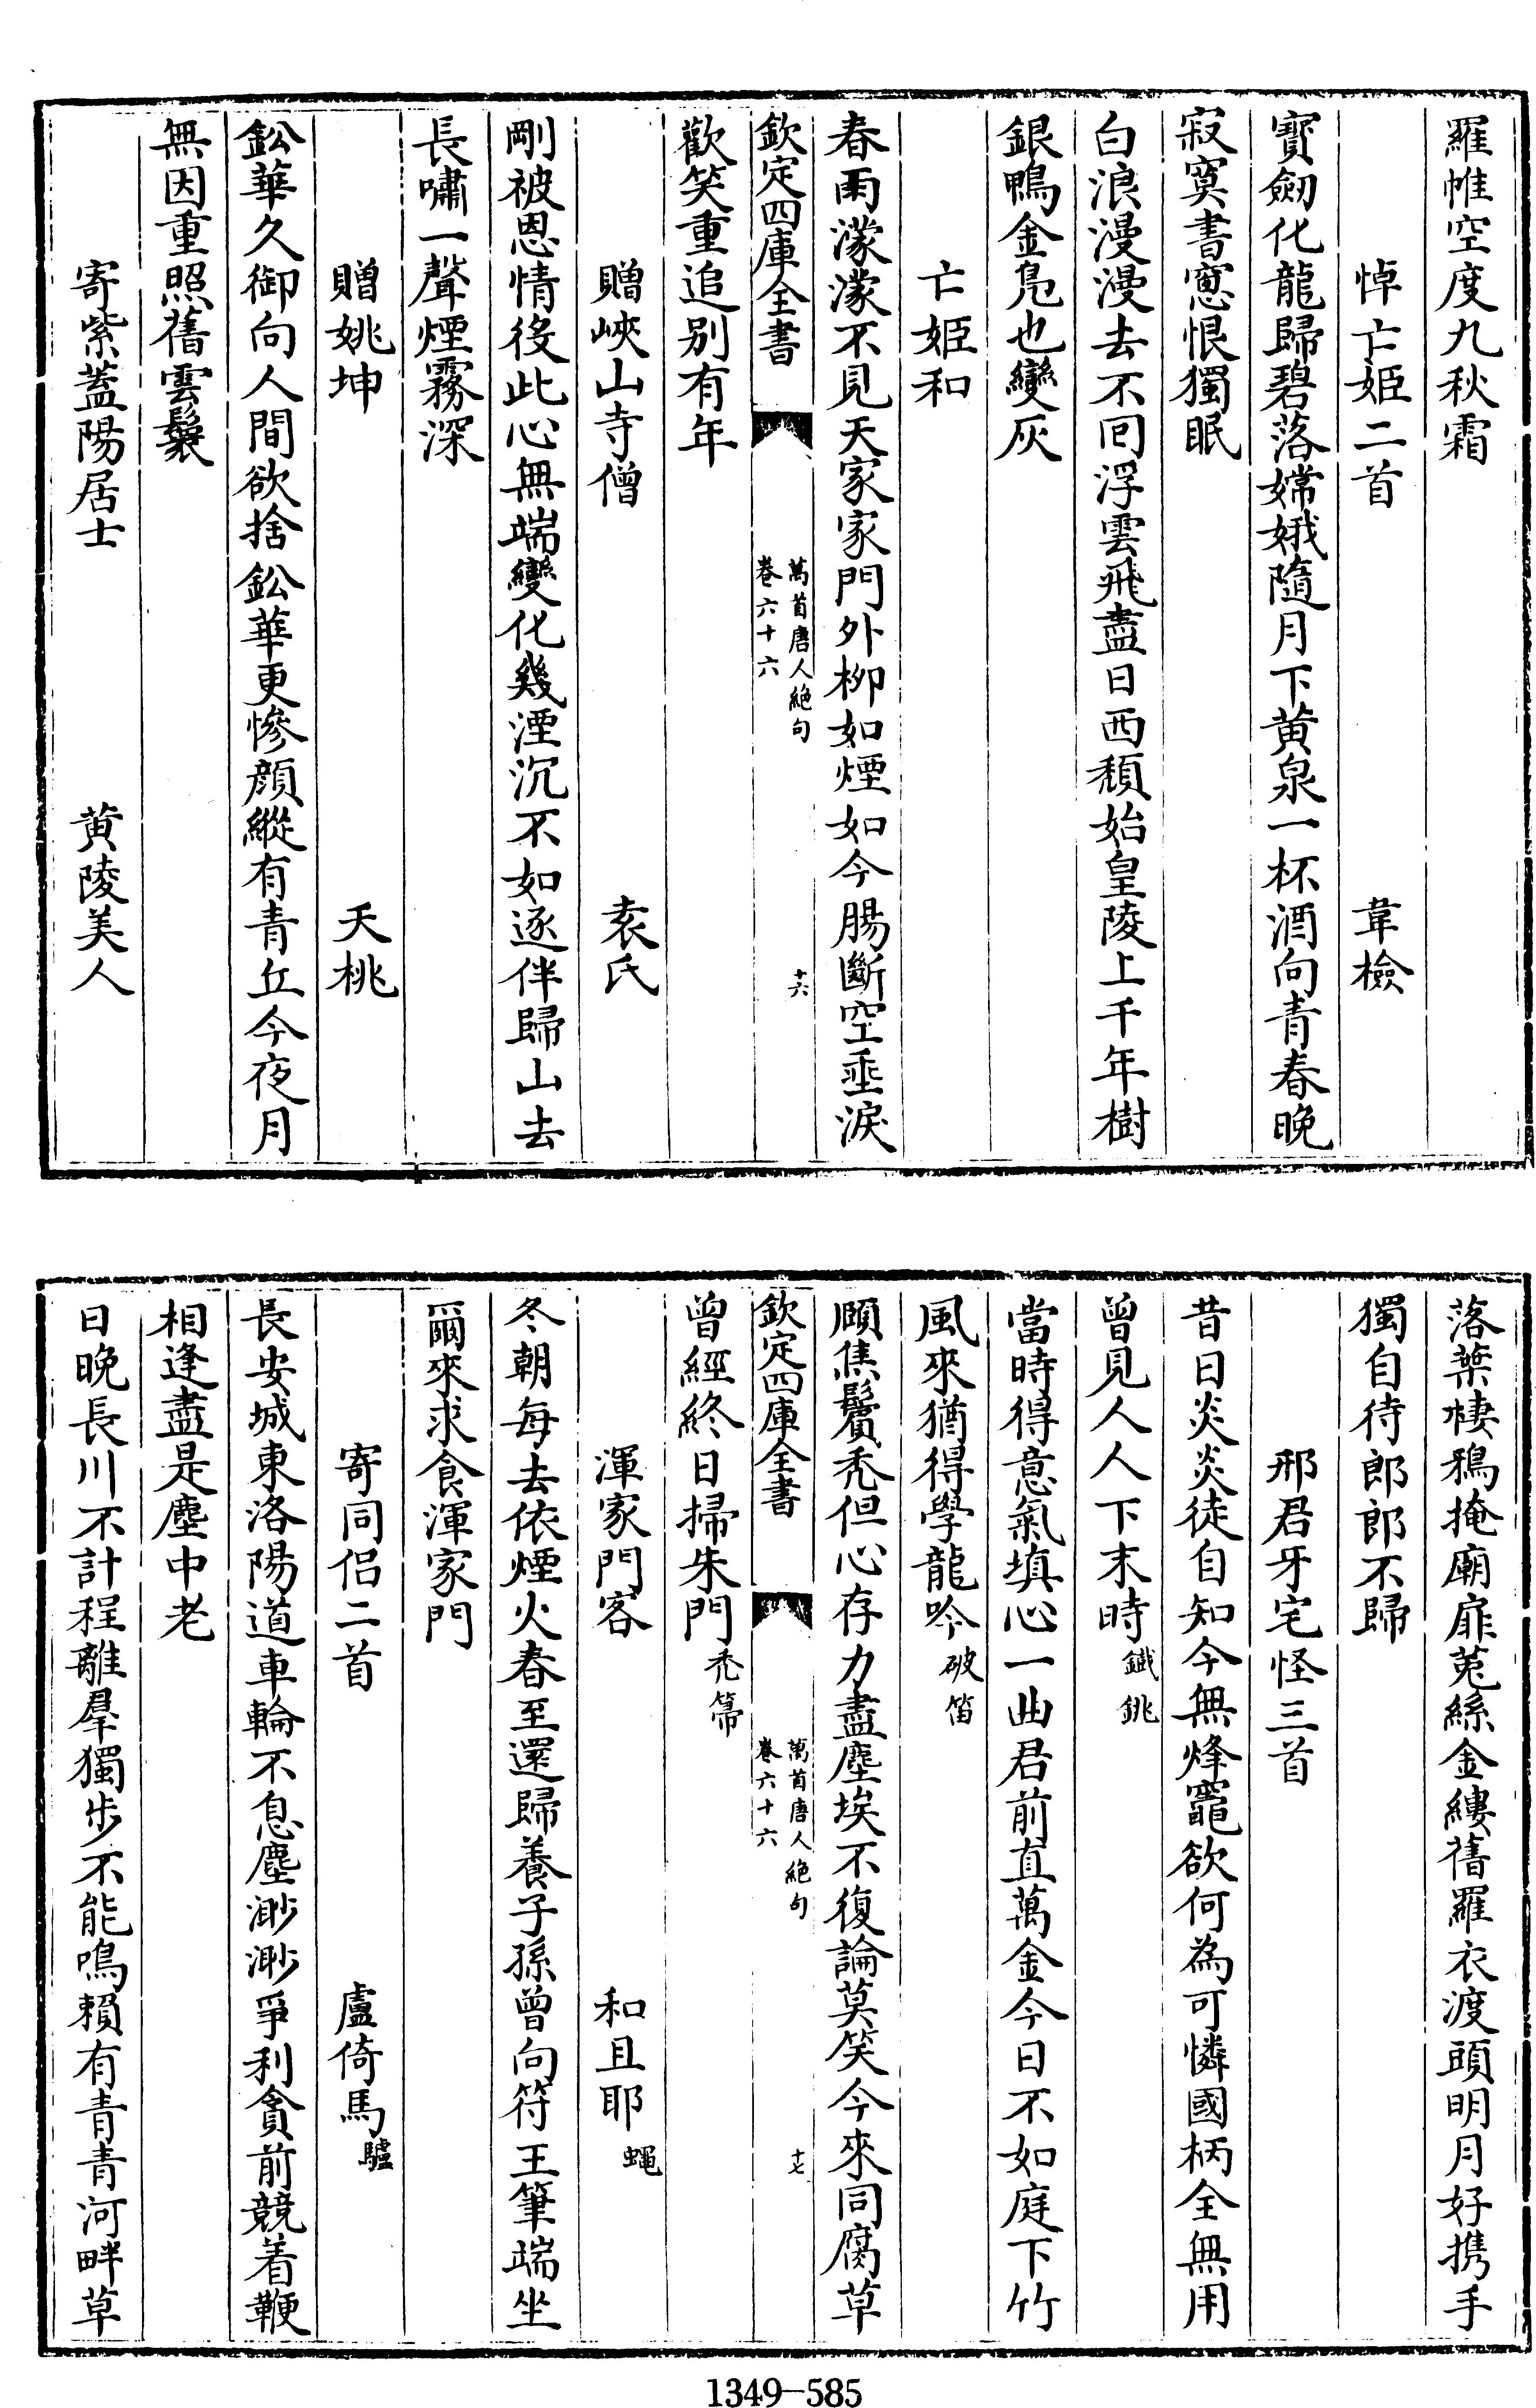 羅帷空度九秋霜
悼亡姬二首 韋檢
寶劒化龍歸碧落嫦娥隨月下黄泉一杯酒向青春晚
寂寞書窻恨獨眠
白浪漫漫去不囘浮雲飛盡日西頽始皇陵上千年樹
銀鴨金凫也變灰
亡姬和
春雨濛濛不見天家家門外柳如煙如今腸斷空垂淚
欽定四庫全書 萬首唐人絶句 卷六十六 十六
歡笑重追别有年
贈峽山寺僧 袁氏
剛被恩情役此心無端變化幾湮沉不如逐伴歸山去
長嘯一聲煙霧深
贈姚坤 夭桃
鈆華久御向人間欲捨鈆華更慘顔縱有青丘今夜月
無因重照舊雲鬟
寄紫蓋陽居士 黄陵美人
落葉棲鴉掩廟扉莵絲金縷舊羅衣渡頭明月好携手
獨自待郎郎不歸
邢君牙宅怪三首
昔日炎炎徒自知今無烽竈欲何為可憐國柄全無用
曾見人人下末時 鐵銚
當時得意氣填心一曲君前直萬金今日不如庭下竹
風來猶得學龍吟 破笛
頋焦鬢秃但心存力盡塵埃不復論莫笑今來同腐草
欽定四庫全書 萬首唐人絶句 卷六十六 十七
曾經終日掃朱門 秃箒
渾家門客 和且耶 蠅
冬朝每去依煙火春至還歸養子孫曾向符王筆端坐
爾來求食渾家門
寄同侣二首 盧倚馬 驢
長安城東洛陽道車輪不息塵渺渺爭利貪前競着鞭
相逢盡是塵中老
日晚長川不計程離羣獨步不能鳴賴有青青河畔草
1349-585